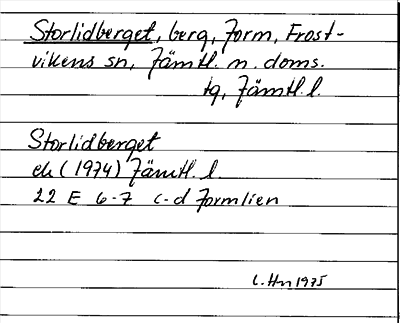 Storlidberget, berg, Form, Frost-
vikens sn, Jämtl. n. doms.
tg, Jämtl. l.
Storlidberget
ek (1974) Jämtl. l
22 E 6-7 c-d Formlien
C. Hn 1975